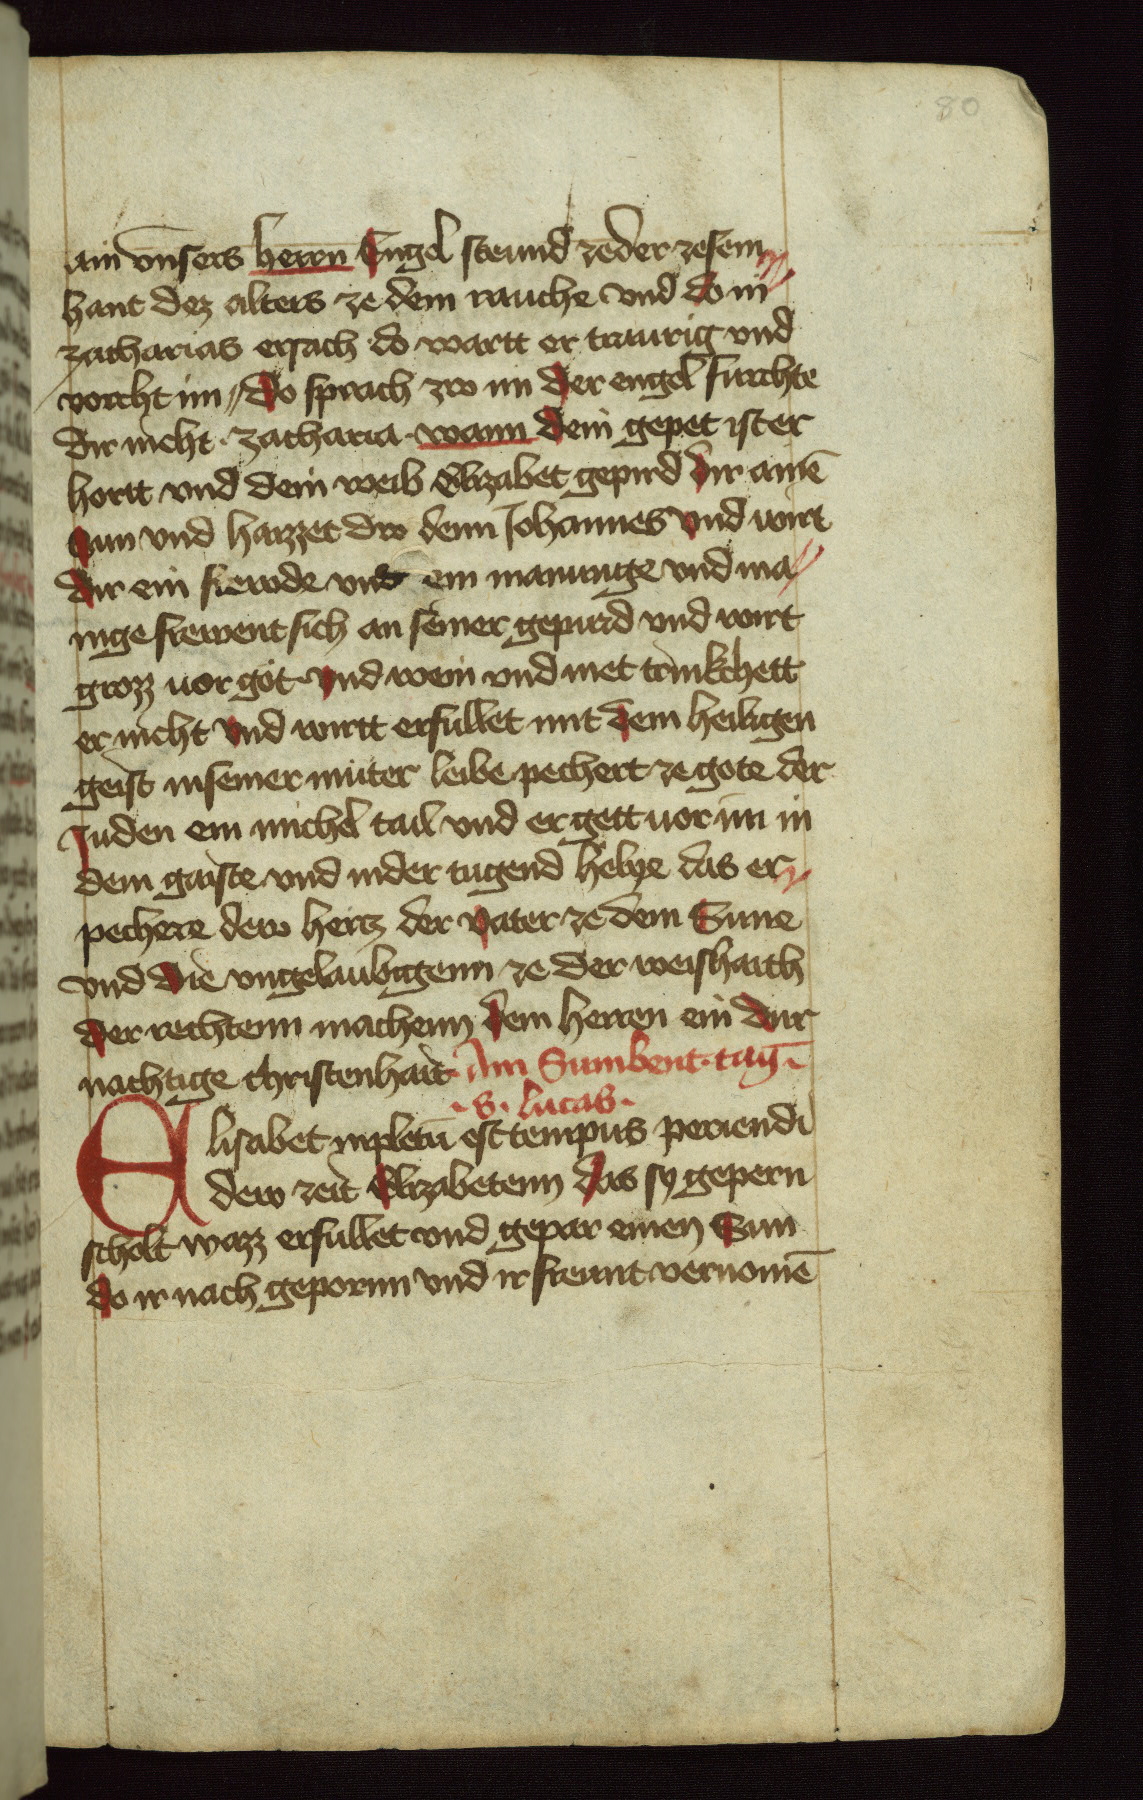 80
ain vnsers herrn Engel stennd ze der zesem
hant dez alters ze dem rauche vnd do in
zacharias ersach do wartt er traurig vnd
vorcht im do sprach zw im der engel furchte
dir nicht · zacharia · wann dein gepet ist er
hortt vnd dein weib Elizabet gepird dir ainē
sun vnd hazzet dw denn Johannes vnd wirt
dir ein frewde vnd ein manunge vnd ma
nige frewent sich an seiner gepurd vnd wirt
grozz uor got vnd wein vnd met trinkchett
er nicht vnd wirtt erfullet mit dem heiligen
geist in seiner muter leibe pechert ze gote der
Juden ein michel tail vnd er gett uor im in
dem gaiste vnd in der tugend helye das er
pechere dew hertz der vater ze dem Sune
vnd die vngelaubigenn ze der weishaith
der rechtenn machenn dem herren ein dur
nachtige christenhait Am Sumbent · tag
· S · lucas ·
Elisabet inpletū est tempus periendi
dew zeit Elizabetenn das sy gepern
scholt wazz erfullet vnd gepar einen Sun
do ir nach gepornn vnd ir freunt vernomē